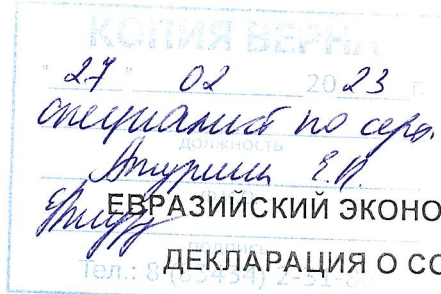 КОПИЯ ВЕРНА
"27" 02 2023 г.
специалист по серт.
должность
Е.П.
ЕВРАЗИЙСКИЙ ЭКОНО
подпись
ДЕКЛАРАЦИЯ О СО
Тел.: 8